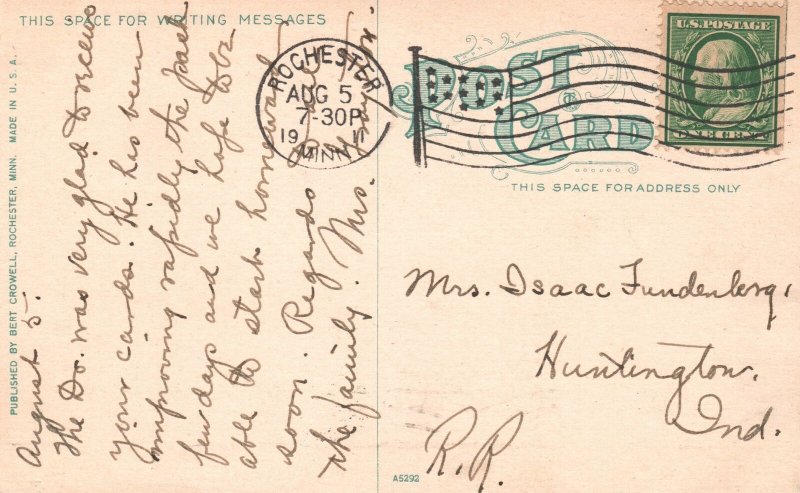 THIS SPACE FOR WRITING MESSAGES
August 5.
The Dr. was very glad to receive
your cards. He has been
improving rapidly the past
few days and we hope to be
able to start homeward
soon. Regards to all
the family. Mrs.
PUBLISHED BY BERT CROWELL, ROCHESTER, MINN. MADE IN U.S.A.
ROCHESTER
AUG 5
7-30P
19 11
MINN.
POST CARD
U.S. POSTAGE
ONE CENT
THIS SPACE FOR ADDRESS ONLY
Mrs. Isaac Fundenberg,
Huntington,
Ind.
R.R.
A5292